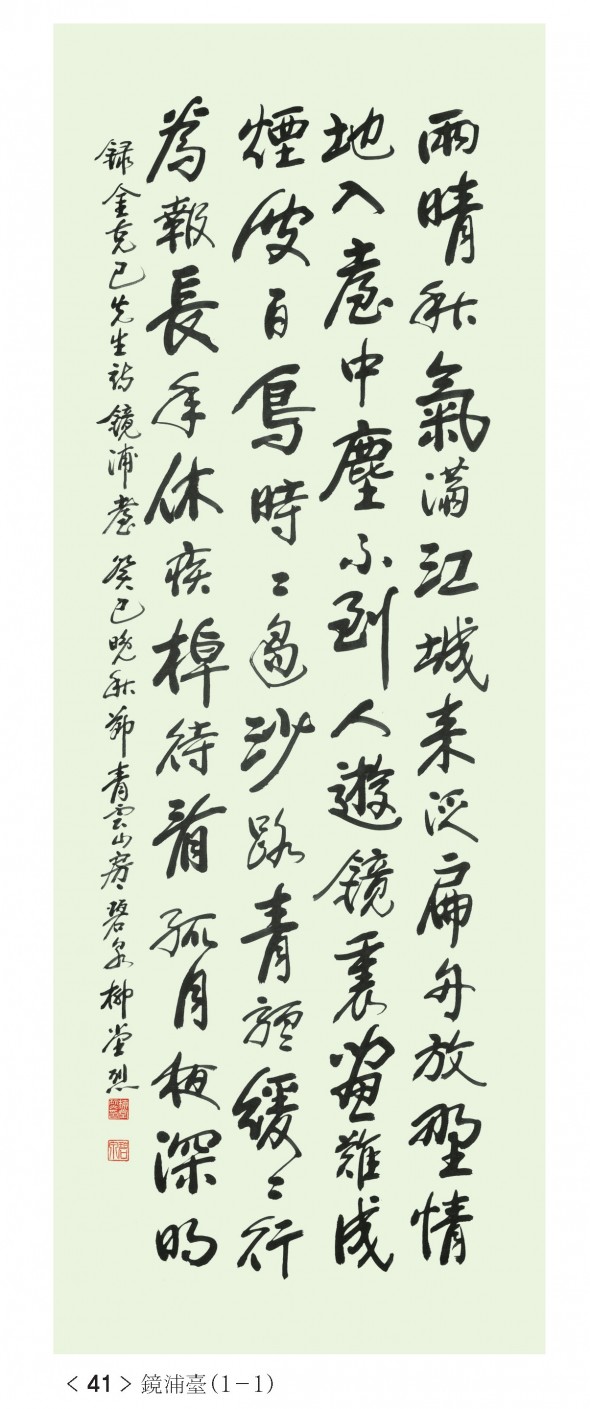 雨晴秋氣滿江城来泛扁舟放野情
地入壺中塵不到人遊鏡裏畫難成
煙波白鳥時〻過沙路青驢緩〻行
為報長年休疾棹待看孤月夜深明
録金克己先生詩鏡浦臺 癸巳晚秋節青雲山房碧泉柳堂烈
< 41 > 鏡浦臺(1-1)